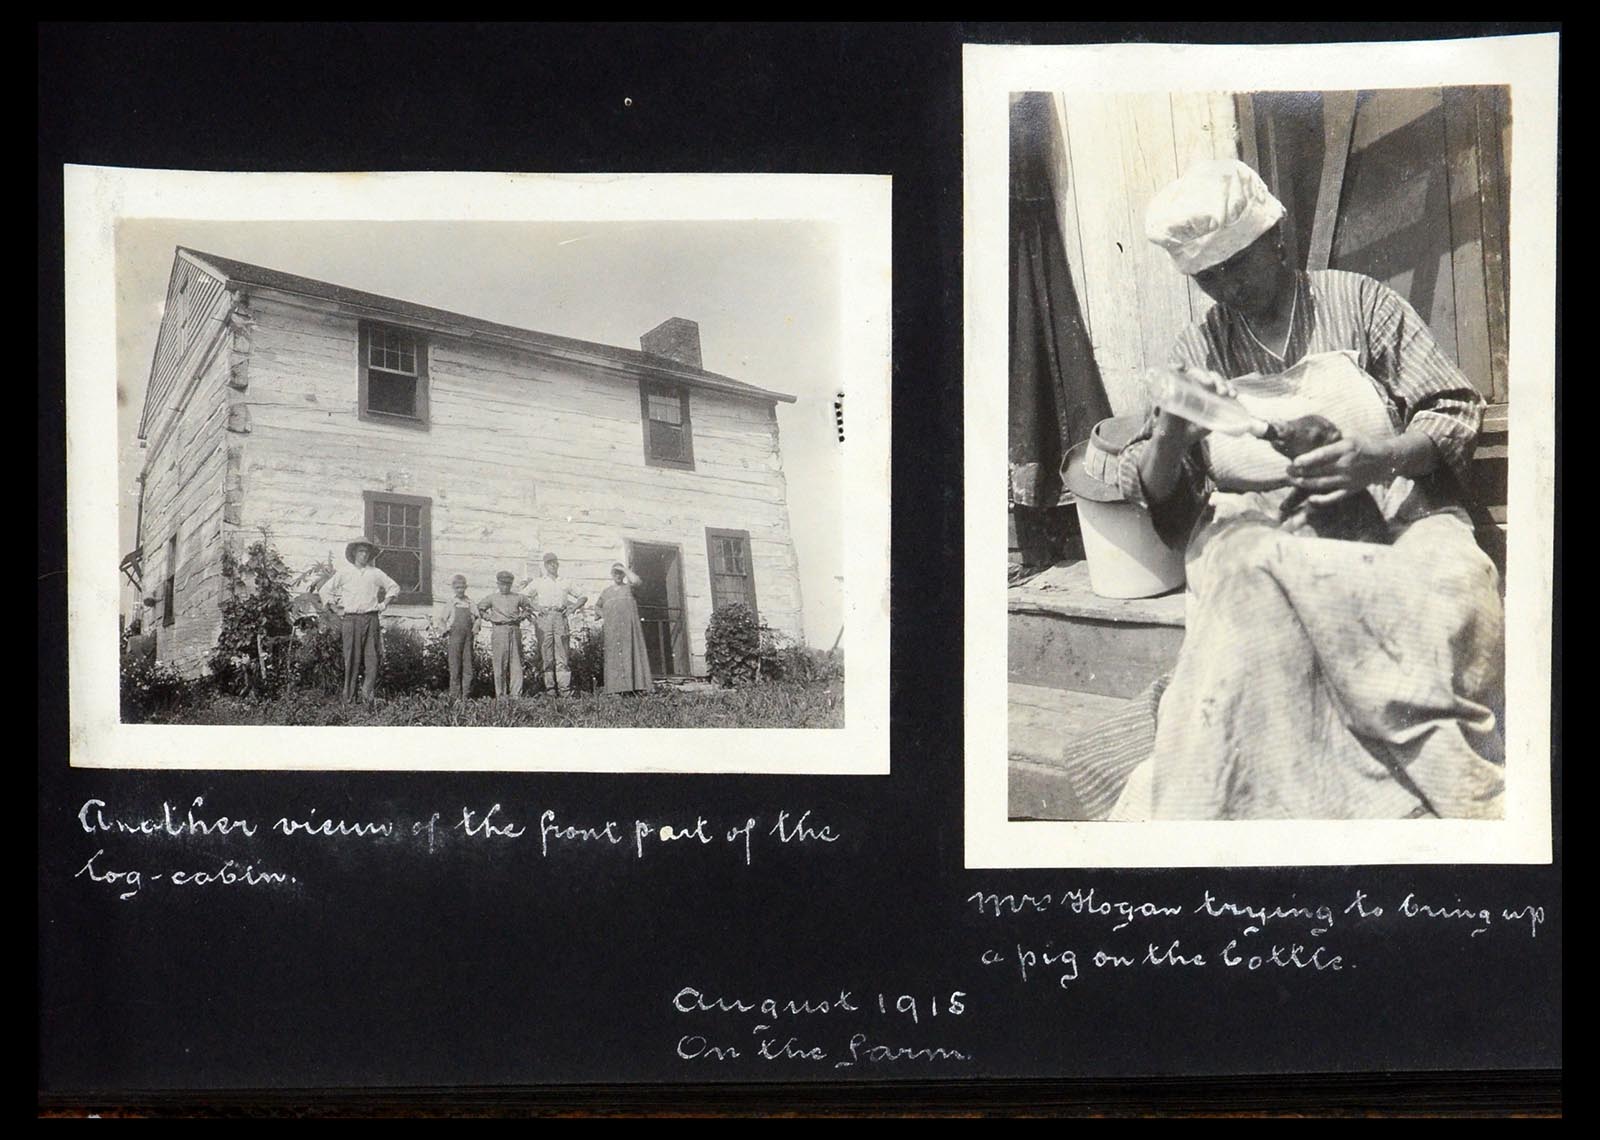 Another view of the front part of the
log-cabin.
Mrs Hogan trying to bring up
a pig on the bottle.
August 1915
On the farm.